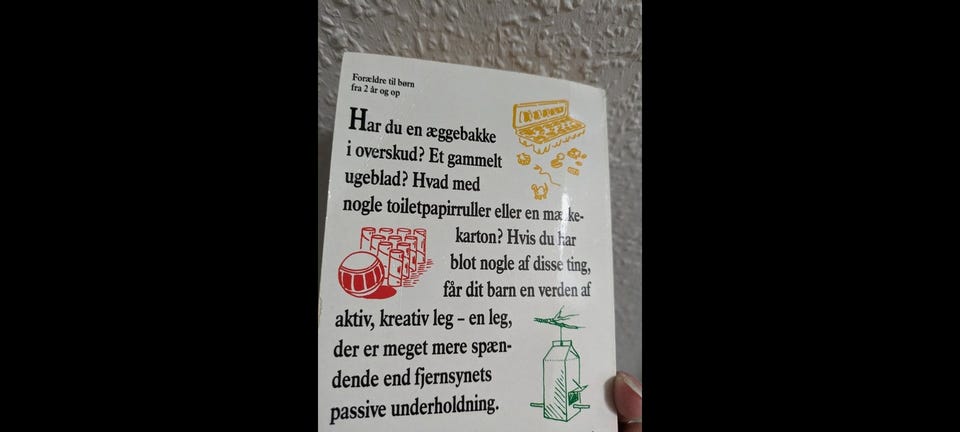 Forældre til børn
fra 2 år og op
Har du en æggebakke
i overskud? Et gammelt
ugeblad? Hvad med
nogle toiletpapirruller eller en mælke-
karton? Hvis du har
blot nogle af disse ting,
får dit barn en verden af
aktiv, kreativ leg – en leg,
der er meget mere spæn-
dende end fjernsynets
passive underholdning.